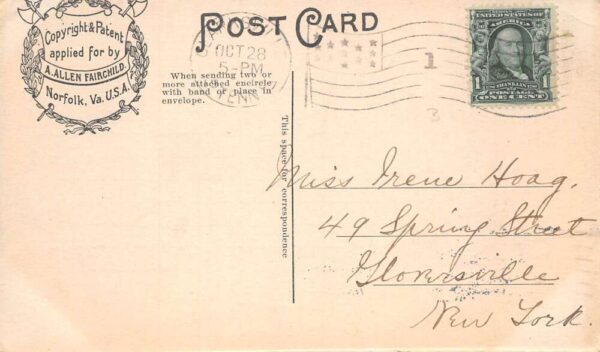 POST CARD
Copyright & Patent
applied for by
A. ALLEN FAIRCHILD
Norfolk, Va. U.S.A.
OCT 28
5-PM
TENN
When sending two or
more attached encircle
with band or place in
envelope.
This space for correspondence
1
3
SERIES 1902
UNITED STATES OF
AMERICA
1 FRANKLIN 1
POSTAGE
ONE CENT
Miss Irene Hoag,
49 Spring Street
Gloversville
New York.